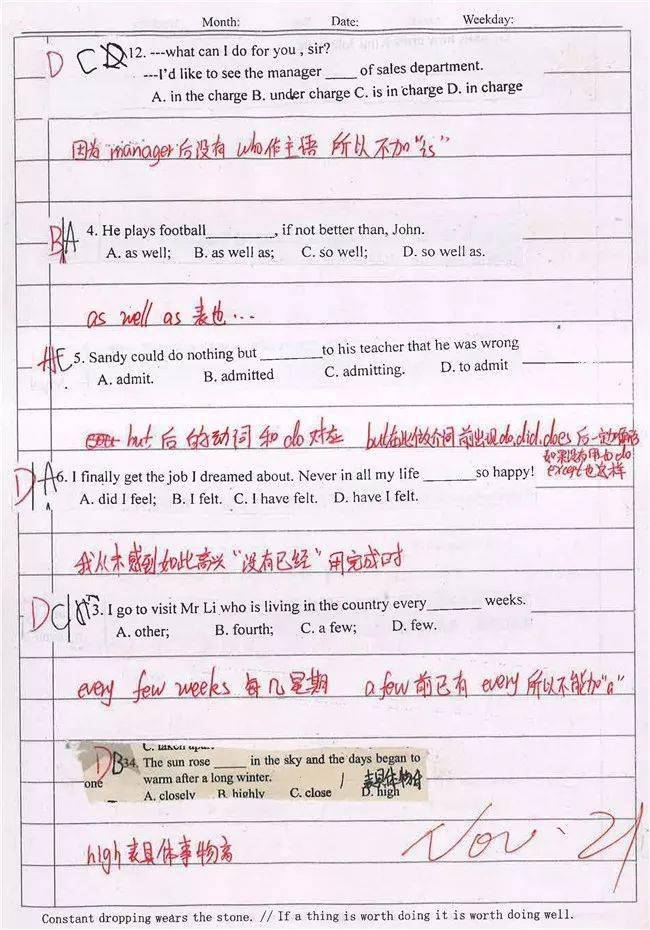 Month: Date: Weekday:
D C D 12. ---what can I do for you , sir?
---I'd like to see the manager ____ of sales department.
A. in the charge B. under charge C. is in charge D. in charge
因为 manager后没有 who作主语 所以不加"is"
B A 4. He plays football_________, if not better than, John.
A. as well; B. as well as; C. so well; D. so well as.
as well as 表也...
A C 5. Sandy could do nothing but _________to his teacher that he was wrong
A. admit. B. admitted C. admitting. D. to admit
but 后的动词和do对应 but在此做介词前出现do,did,does 后一定加原形
如果没有用to do
except也这样
D A 6. I finally get the job I dreamed about. Never in all my life _______so happy!
A. did I feel; B. I felt. C. I have felt. D. have I felt.
我从未感到如此高兴"没有已经"用完成时
D C 3. I go to visit Mr Li who is living in the country every_______ weeks.
A. other; B. fourth; C. a few; D. few.
every few weeks 每几星期 a few 前已有 every 所以不能加"a"
C. taken apart
D B 34. The sun rose _____ in the sky and the days began to
one warm after a long winter. 表具体物体
A. closely B. highly C. close D. high
high表具体事物高
Nov. 21
Constant dropping wears the stone. // If a thing is worth doing it is worth doing well.